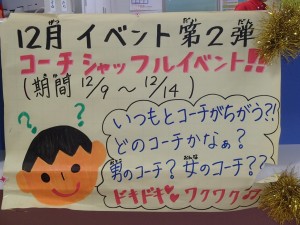 12月イベント第2弾
コーチシャッフルイベント!!
(期間 12/9～12/14)
? ?
いつもとコーチがちがう?!
どのコーチかなぁ?
男のコーチ? 女のコーチ??
ドキドキ♥ワクワク♫